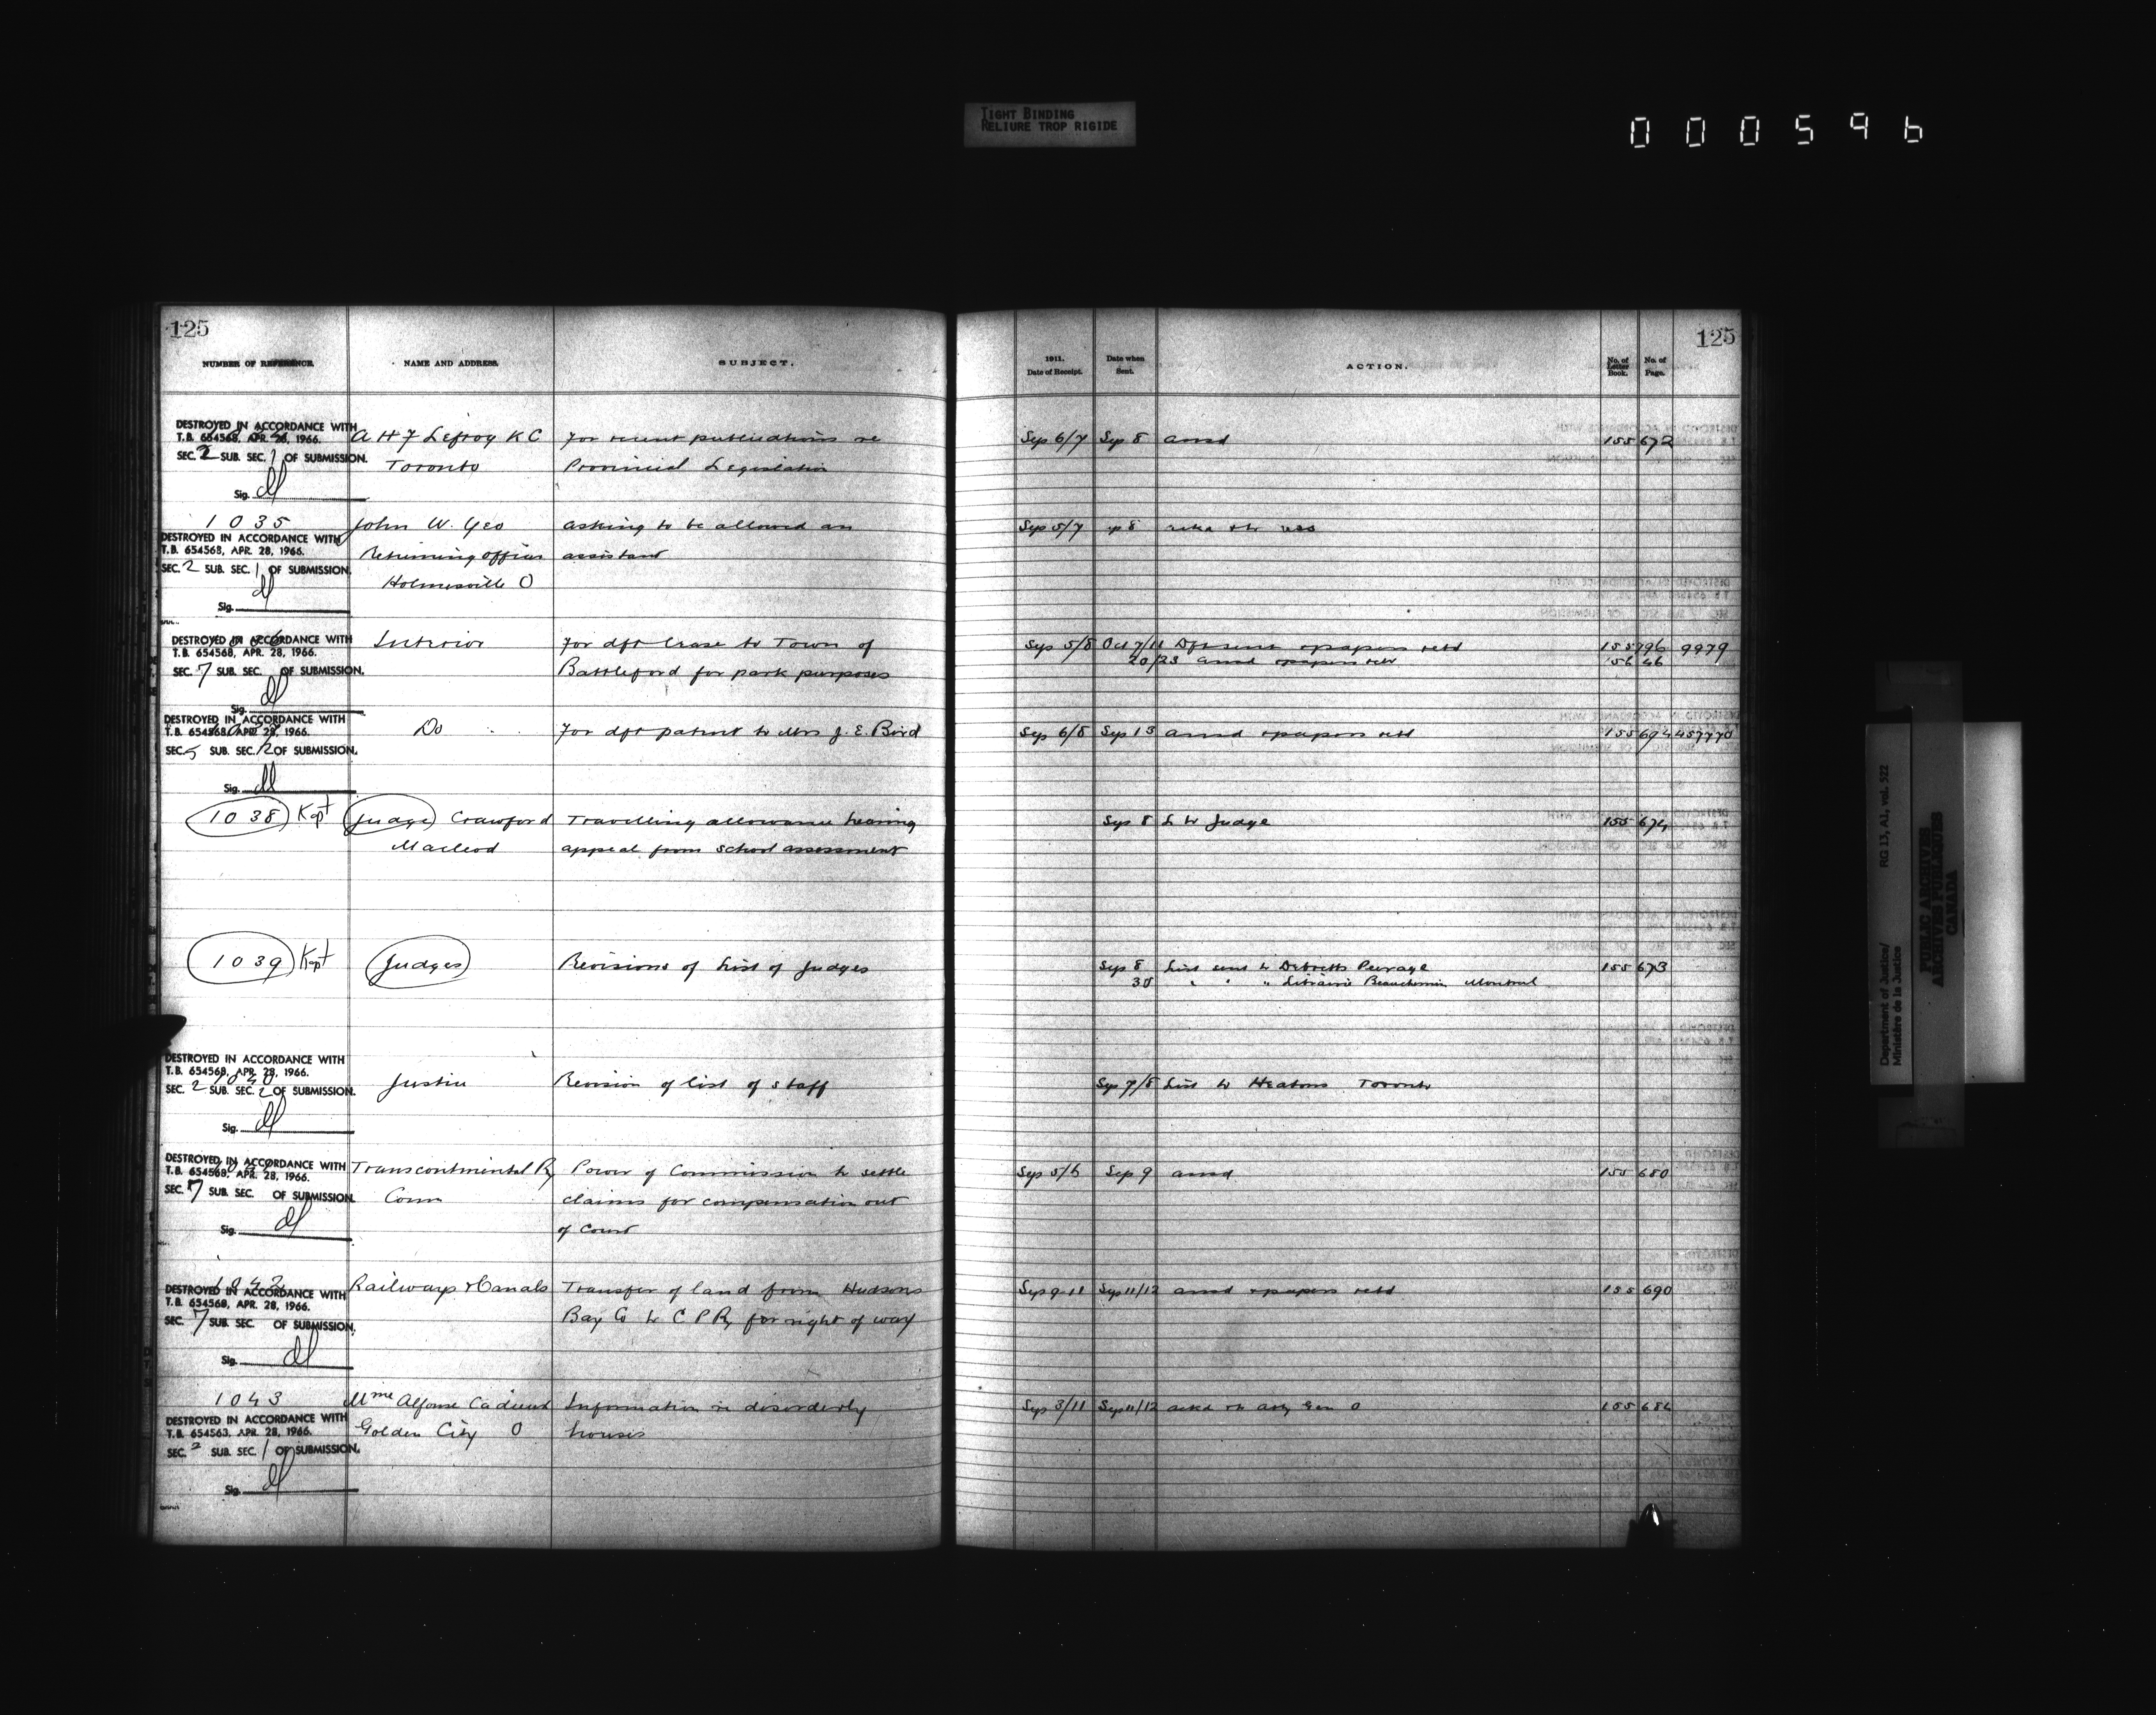 TIGHT BINDING
RELIURE TROP RIGIDE
000596
125
NUMBER OF REFERENCE. NAME AND ADDRESS. SUBJECT.
DESTROYED IN ACCORDANCE WITH
T.B. 654568, APR. 28, 1966. A H F Lefroy K C For recent publications re
SEC. 2 SUB. SEC. 1 OF SUBMISSION. Toronto Provincial Legislation
Sig.
1035 John W. Yeo asking to be allowed an
DESTROYED IN ACCORDANCE WITH
T.B. 654568, APR. 28, 1966. Returning officer assistant
SEC. 2 SUB. SEC. 1 OF SUBMISSION. Holmesville O
Sig.
DESTROYED IN ACCORDANCE WITH Interior For dft lease to Town of
T.B. 654568, APR. 28, 1966.
SEC. 7 SUB. SEC. OF SUBMISSION. Battleford for park purposes
Sig.
DESTROYED IN ACCORDANCE WITH
T.B. 654568, APR. 28, 1966. Do For dft patent to Mrs J. E. Bird
SEC. 5 SUB. SEC. 12 OF SUBMISSION.
Sig.
1038 Kept Judge Crawford Travelling allowance hearing
Macleod appeal from school assessment
1039 Kept Judges Revisions of List of Judges
DESTROYED IN ACCORDANCE WITH
T.B. 654568, APR. 28, 1966.
1040 Justice Revision of list of staff
SEC. 2 SUB. SEC. 2 OF SUBMISSION.
Sig.
DESTROYED IN ACCORDANCE WITH Transcontinental Ry Power of Commission to settle
T.B. 654568, APR. 28, 1966.
SEC. 7 SUB. SEC. OF SUBMISSION. Comn claims for compensation out
of Court
Sig.
1042 Railways & Canals Transfer of land from Hudsons
DESTROYED IN ACCORDANCE WITH
T.B. 654568, APR. 28, 1966.
SEC. 7 SUB. SEC. OF SUBMISSION. Bay Co to C P Ry for right of way
Sig.
1043 Mme Alfonse Information re disorderly
DESTROYED IN ACCORDANCE WITH
T.B. 654568, APR. 28, 1966. Golden City O houses
SEC. 2 SUB. SEC. 1 OF SUBMISSION.
Sig.
125
1911. Date of Receipt. Date when Sent. ACTION. No. of Letter Book. No. of Page.
Sep 6/7 Sep 8 ansd 155 672
Sep 5/7
Sep 5/8 Oct 7/11 papers retd 155 796 9979
20/23 ansd & papers retd 156 46
Sep 6/8 Sep 13 ansd & papers retd 155 694 457770
Sep 8 L to Judge 155 674
Sep 8 List sent to Debretts Peerage 155 673
30 " " " Librairie Beauchemin Montreal
Sep 7/8 List to Heatons Toronto
Sep 5/6 Sep 9 ansd 155 680
Sep 9 11 Sep 11/12 ansd & papers retd 155 690
Sep 3/11 Sep 11/12 ackd Atty Gen O 155 684
Department of Justice/
Ministère de la Justice
RG 13, A1, vol. 522
PUBLIC ARCHIVES
ARCHIVES PUBLIQUES
CANADA